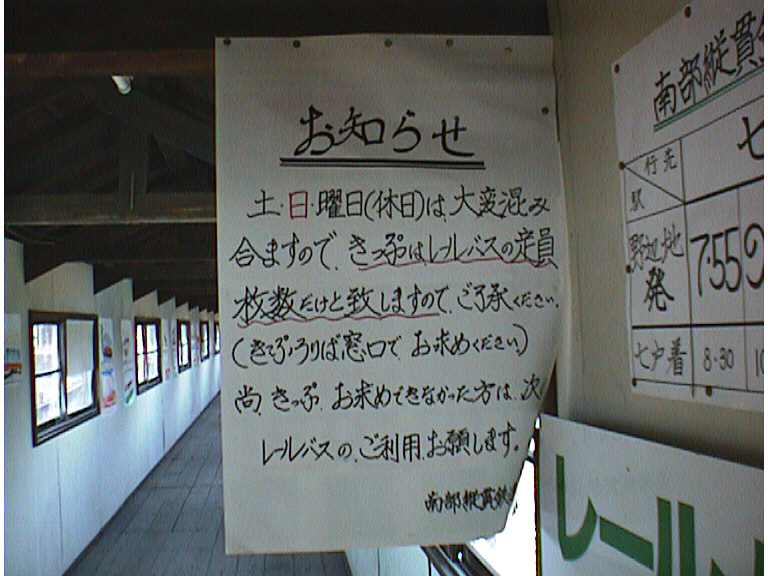 お知らせ
土・日・曜日(休日)は、大変混み
合ますので、きっぷはレールバスの定員
枚数だけと致しますので、ご了承ください。
(きっぷうりば窓口で、お求めください)
尚、きっぷ、お求めできなかった方は、次
レールバスの、ご利用、お願します。
南部縦貫鉄
南部縦貫
行先
七
駅
野辺地
発
7:55
七戸着
8・30
レール